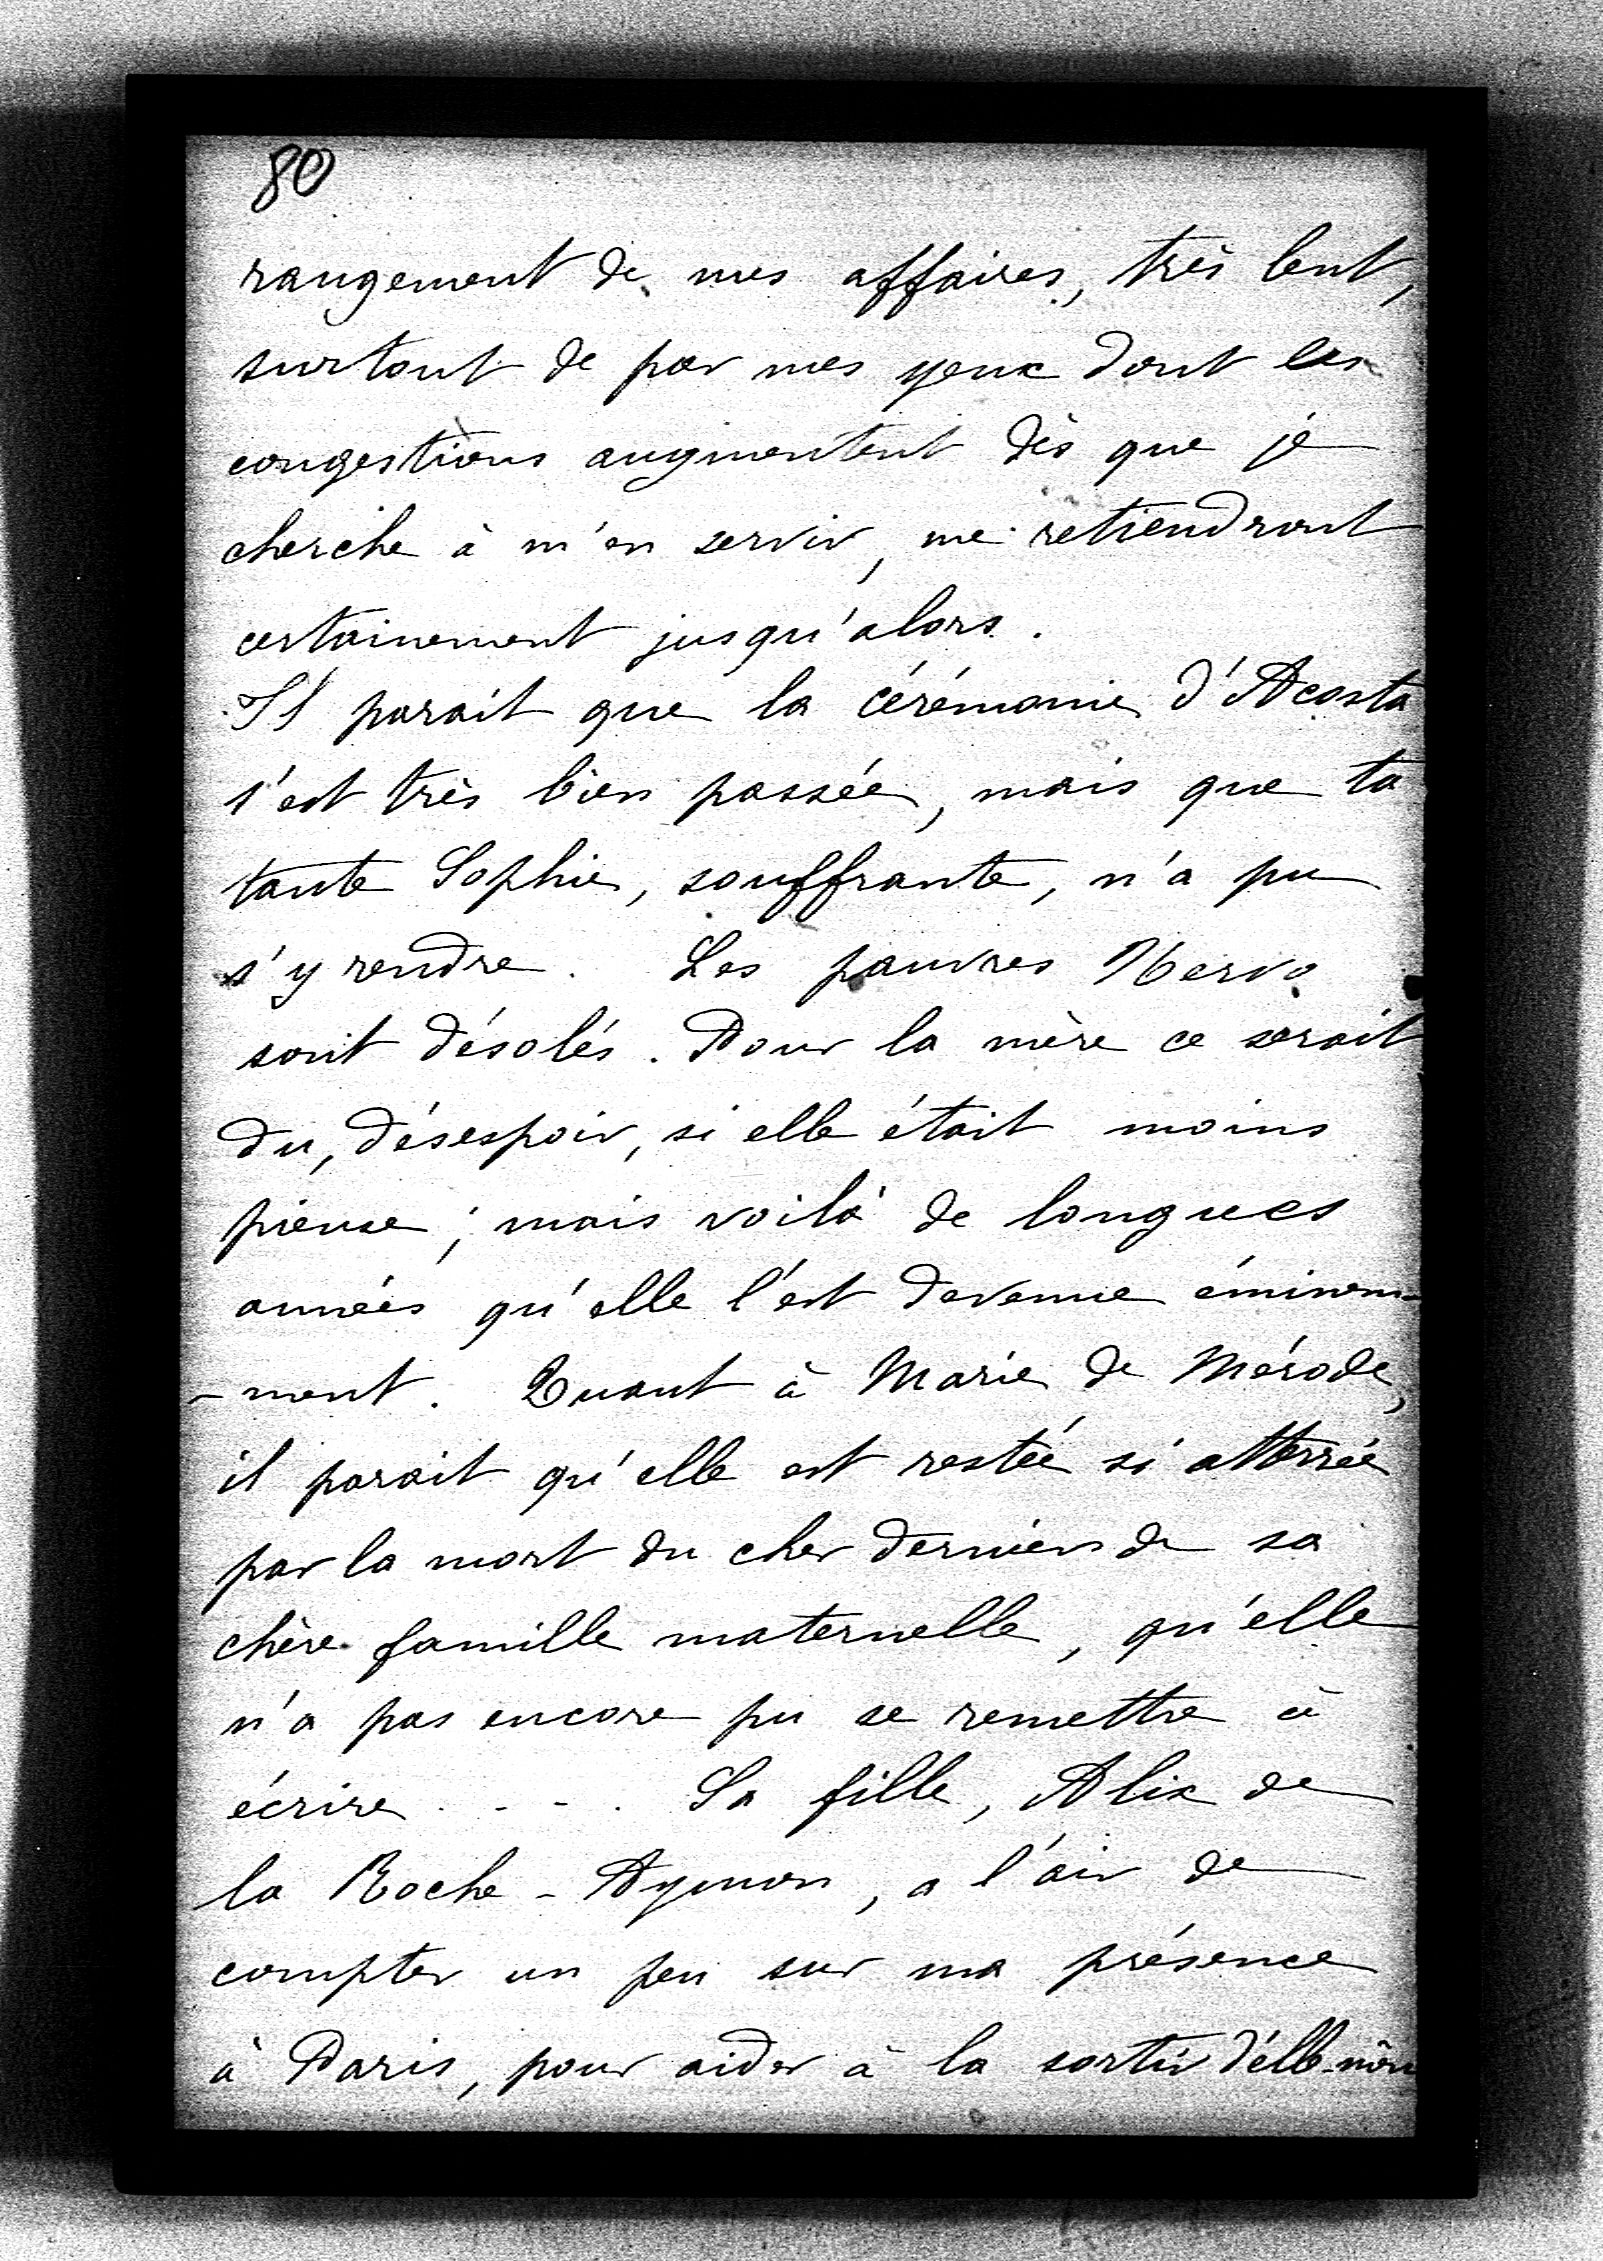 80
rangement de mes affaires, très lent,
surtout de par mes yeux dont les
congestions augmentent dès que je
cherche à m'en servir, me retiendront
certainement jusqu'alors.
Il parait que la cérémonie d'Acosta
s'est très bien passée, mais que ta
tante Sophie, souffrante, n'a pu
s'y rendre. Les pauvres Nervo
sont désolés. Pour la mère ce serait
du désespoir, si elle était moins
pieuse; mais voilà de longues
années qu'elle l'est devenue éminem-
-ment. Quant à Marie de Mérode,
il parait qu'elle est restée si atterrée
par la mort du cher dernier de sa
chère famille maternelle, qu'elle
n'a pas encore pu se remettre à
écrire. - - . Sa fille, Alix de
la Roche-Aymon, a l'air de
compter un peu sur ma présence
à Paris, pour aider à la sortir d'elle-même